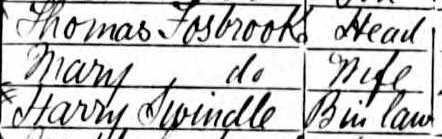 Thomas Fosbrooks Head
Mary do Wife
Harry Swindle B in law